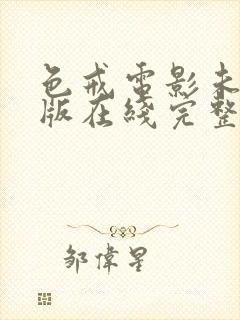 色戒電影未
版在綫完整
鄒偉星